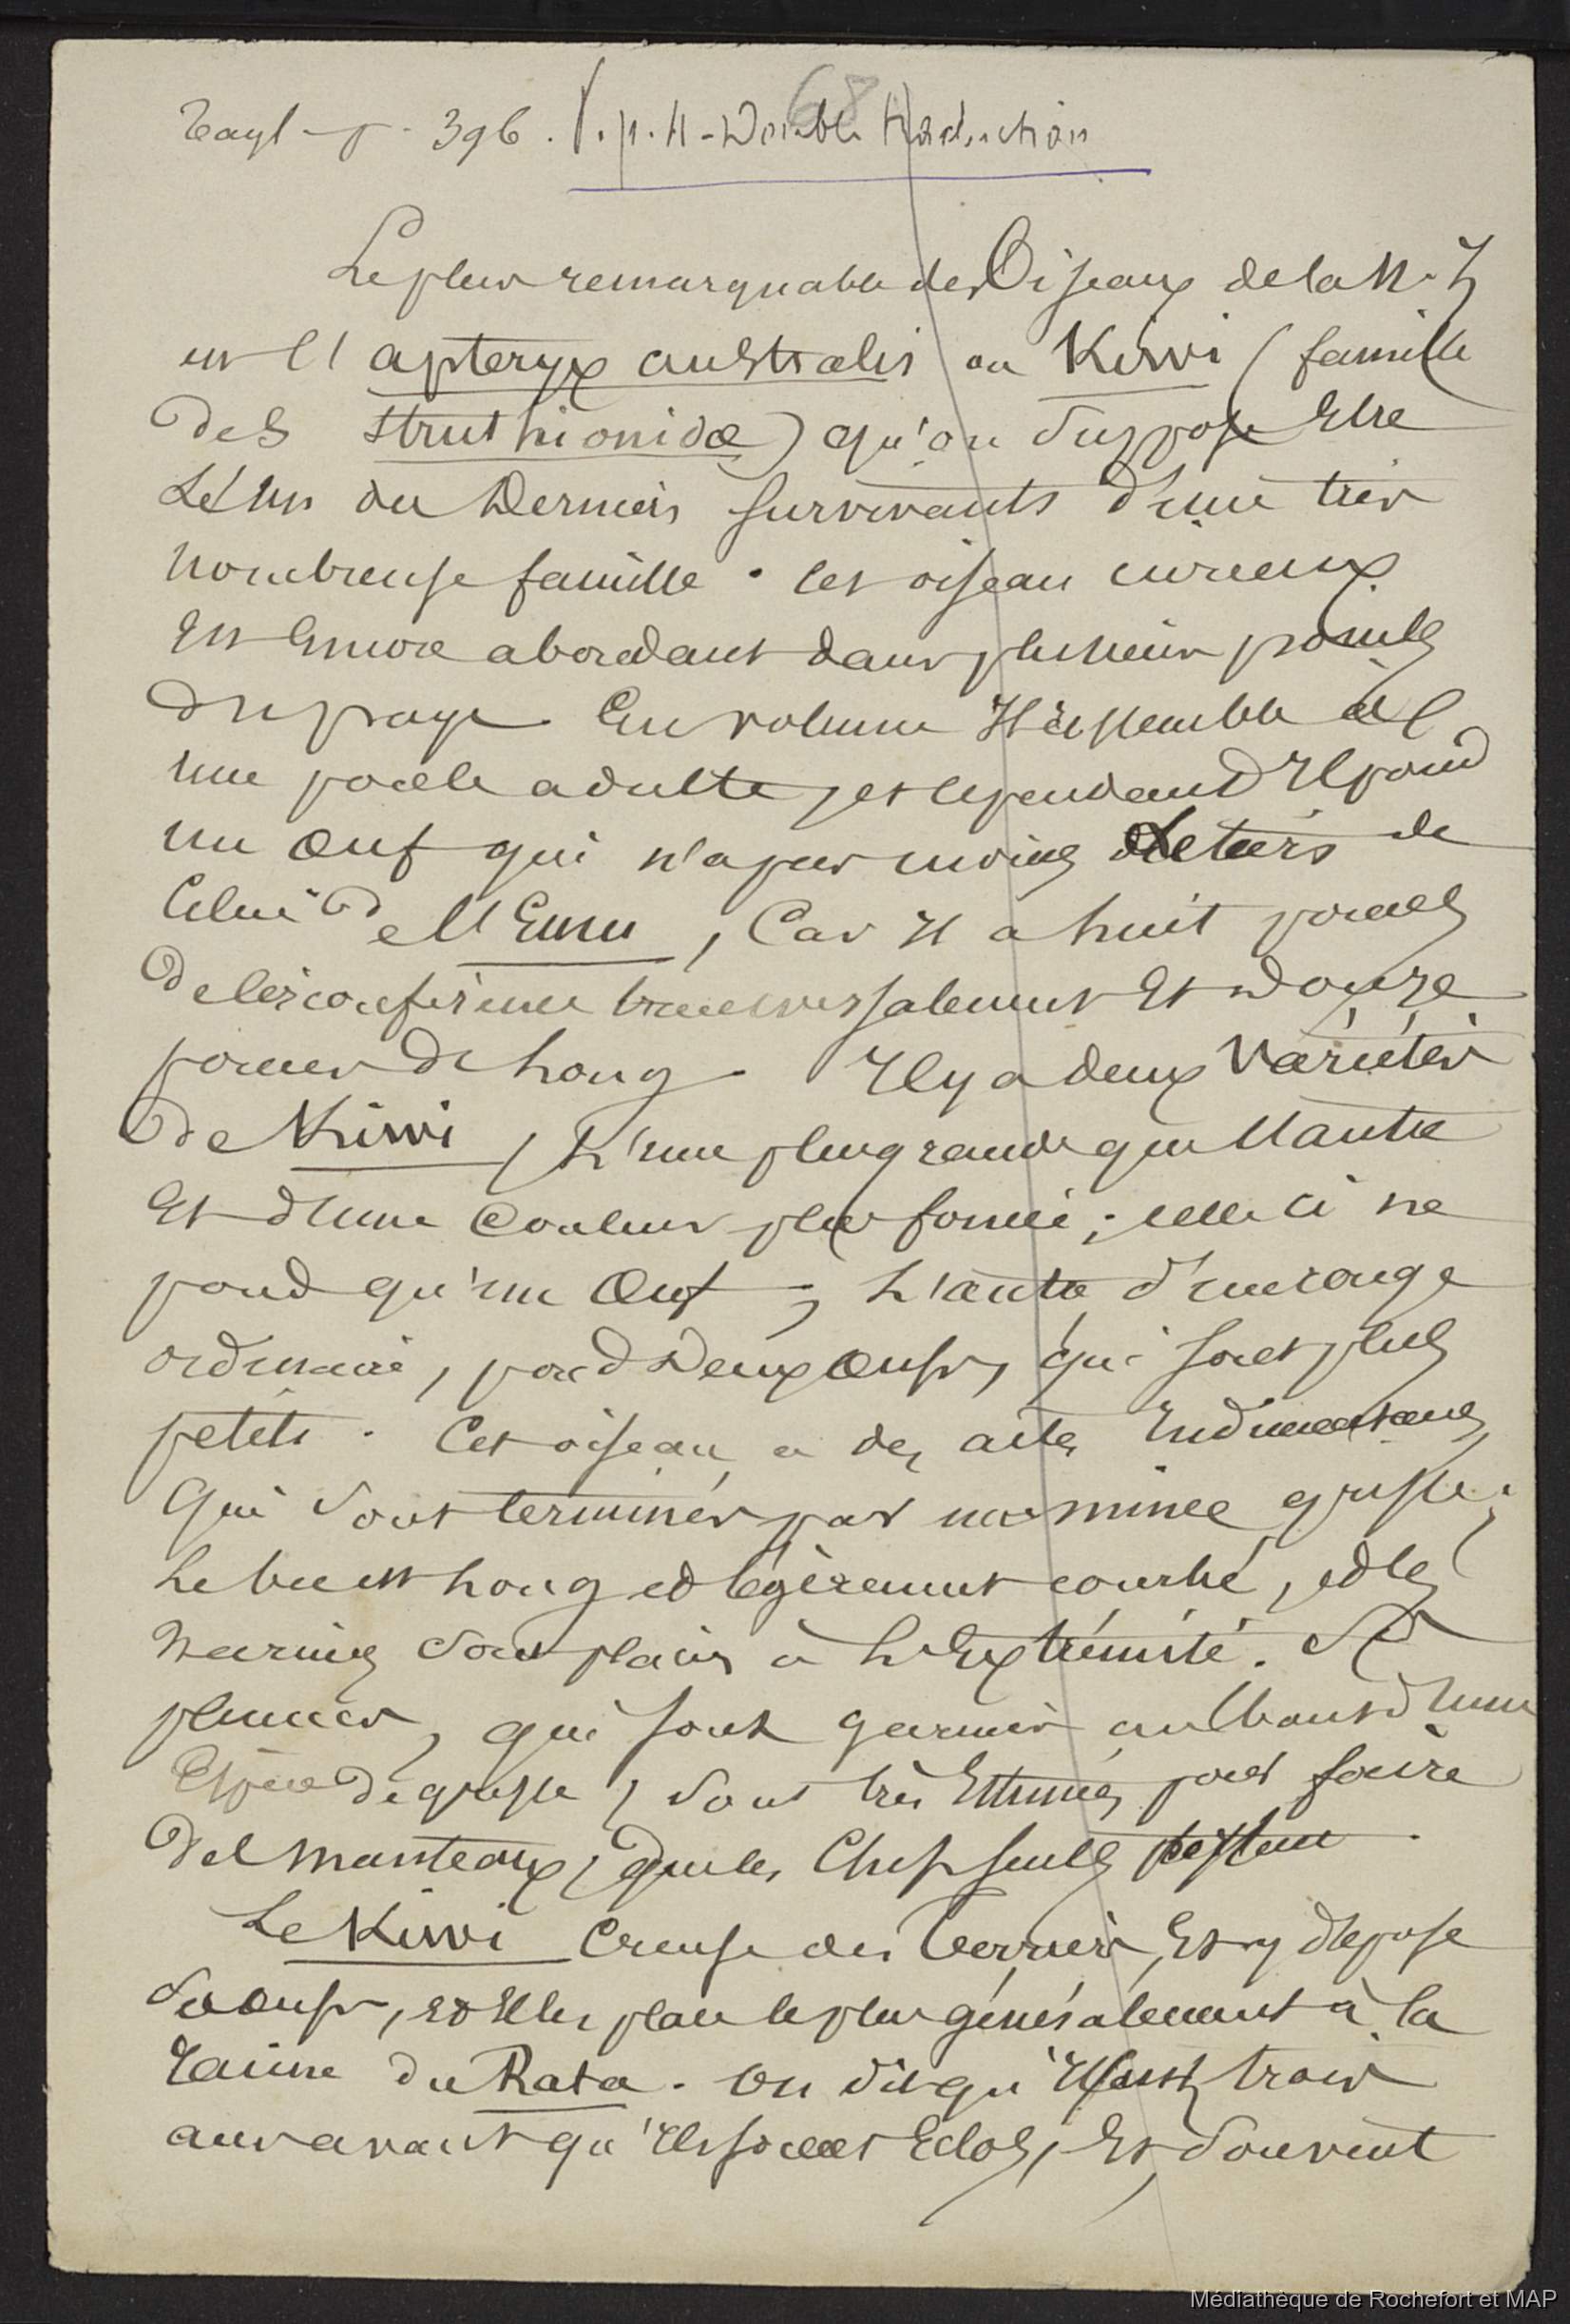 Tayl - p. 396. V. p. H - Double traduction
68
Le plus remarquable des Oiseaux de la N. Z
est l'apteryx australis ou Kiwi (famille
des struthionidæ) qu'on suppose Etre
L'un des Derniers survivants d'une très
nombreuse famille. Cet oiseau curieux
Est Encore abondant dans plusieurs points
du pays. En volume Il ressemble à
une poule adulte, et cependant Il pond
un Œuf qui n'a pas moins de
Celui de l'Emu, Car Il a huit pouces
De circonférence transversalement Et Douze
pouces de Long. Il y a deux Variétés
De Kiwi, L'une plus grande que l'autre
Et d'une Couleur plus foncée; celle ci ne
pond qu'un Œuf; L'autre d'un rouge
ordinaire, pond Deux Œufs, qui sont plus
petits. Cet oiseau a des ailes
Qui sont terminées par une mince griffe;
Le bec est Long et légèrement courbé, et les
Narines sont placées à L'Extrémité. Ses
plumes, qui sont garnies au bout d'une
Espèce de griffe, sont très Estimées pour faire
Des manteaux, que les Chefs seuls portent.
Le Kiwi Creuse des Terriers, Et y dépose
Ses œufs, et Il les place le plus généralement à la
racine du Rata. On dit qu'Il faut trois
ans avant qu'Ils soient Eclos, Et souvent
Médiathèque de Rochefort et MAP